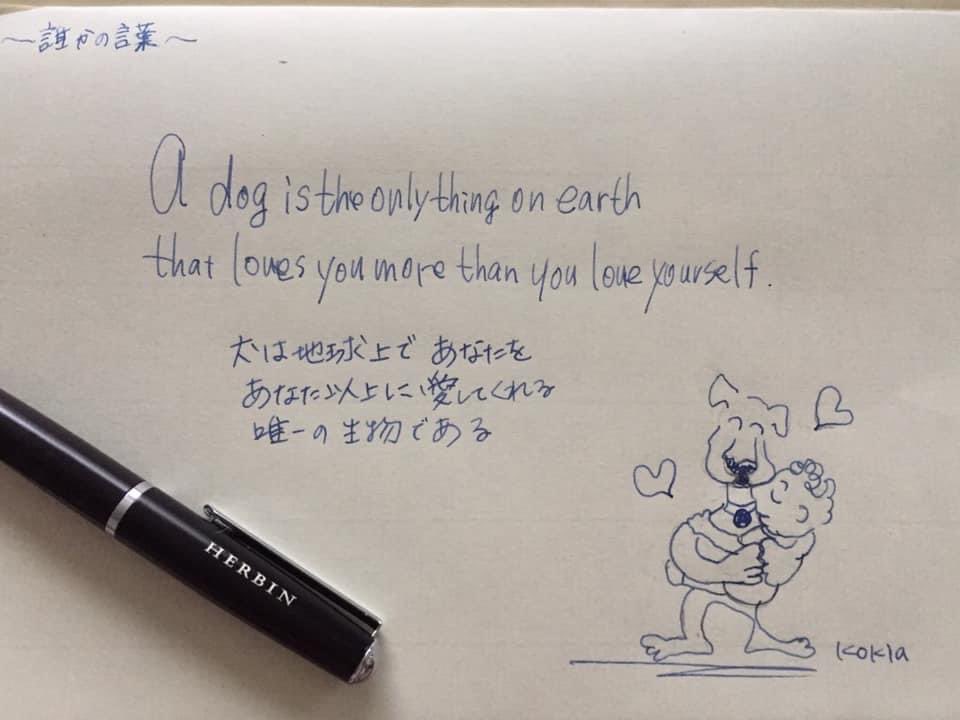 ～誰かの言葉～
A dog is the only thing on earth
that loves you more than you love yourself.
犬は地球上で あなたを
あなた以上に愛してくれる
唯一の生物である
HERBIN
KOKIA